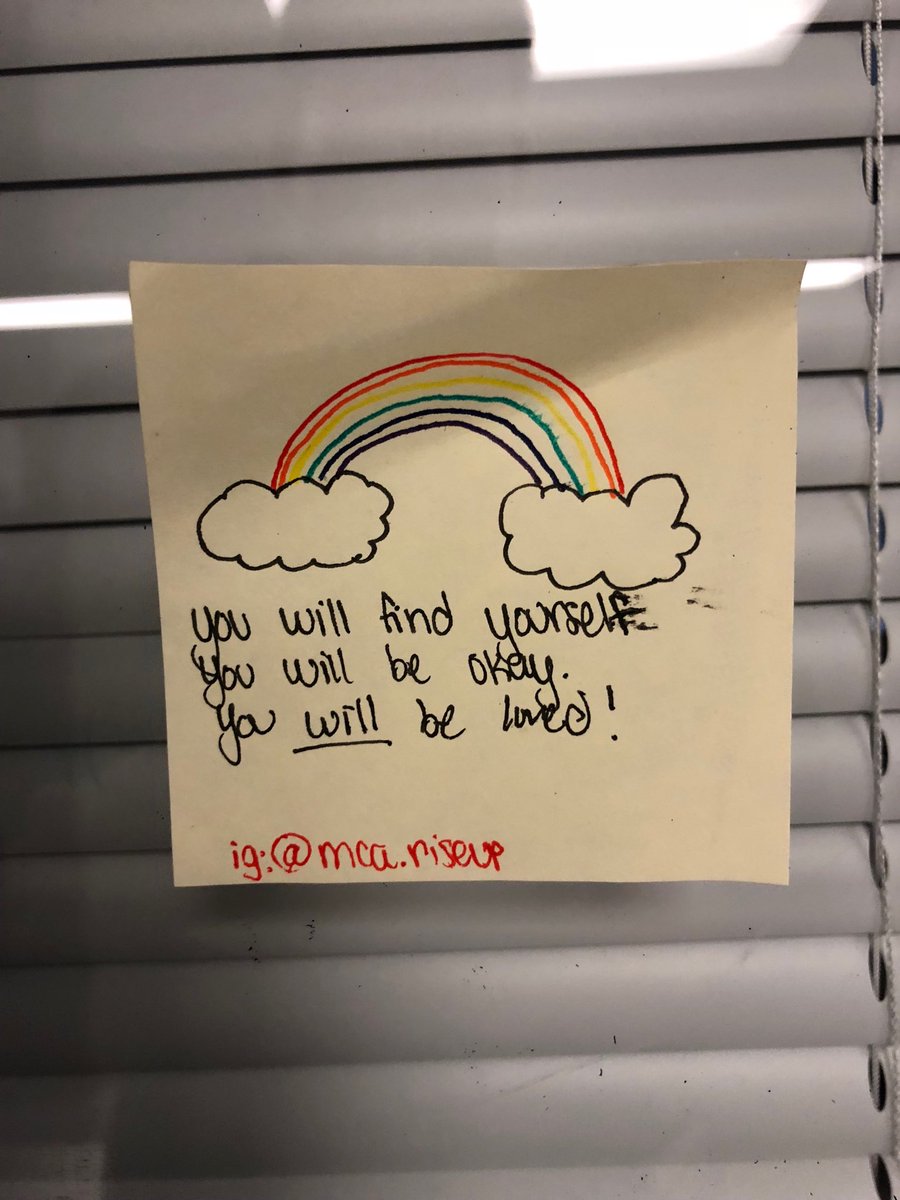 you will find yourself
You will be okay.
You will be loved!
ig:@mca.riseup